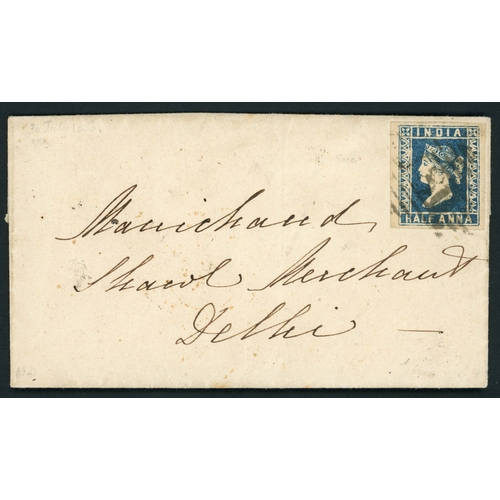 INDIA
HALF ANNA
Manichaud
Shawl Merchant
Delhi —